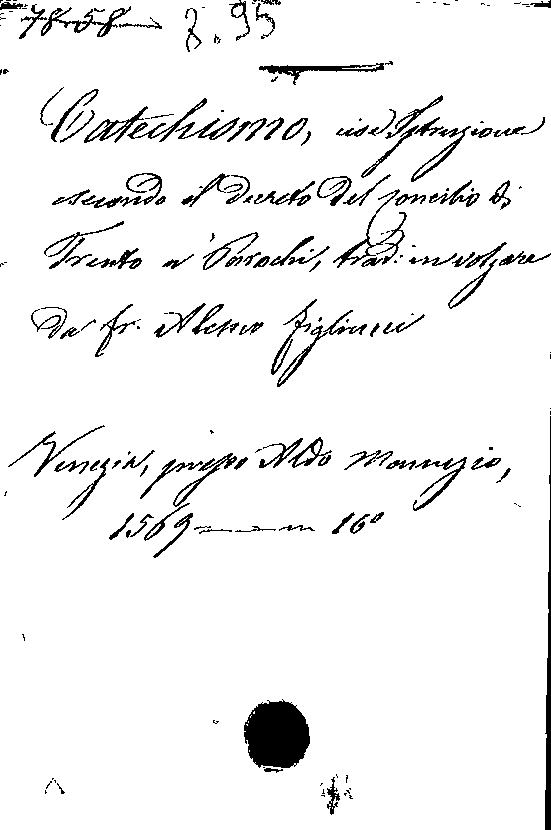 78-58 8.95
Catechismo, cioè Istruzione
secondo il Decreto Del concilio di
Trento a' Parochi, trad: in volgare
Da fr. Alessio figliucci
Venezia, presso Aldo Manuzio,
1569 — in 16º